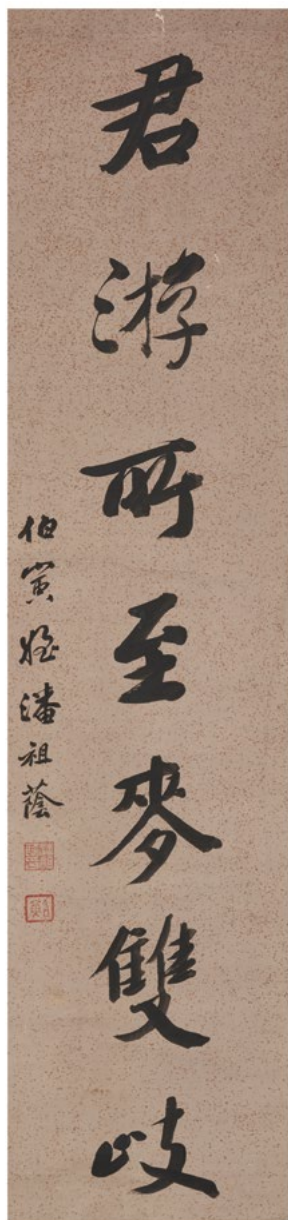 君游所至麥雙岐
伯寅姪潘祖蔭